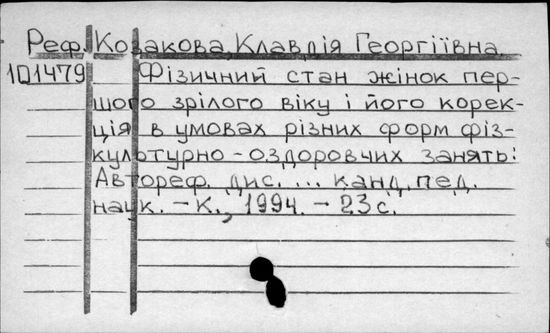 Реф. Козакова, Клавдія Георгіївна
101479 Фізичний стан жінок пер-
шого зрілого віку і його корек-
ція в умовах різних форм фіз-
культурно-оздоровчих занять:
Автореф. дис. ... канд. пед.
наук. - К., 1994. - 23 с.